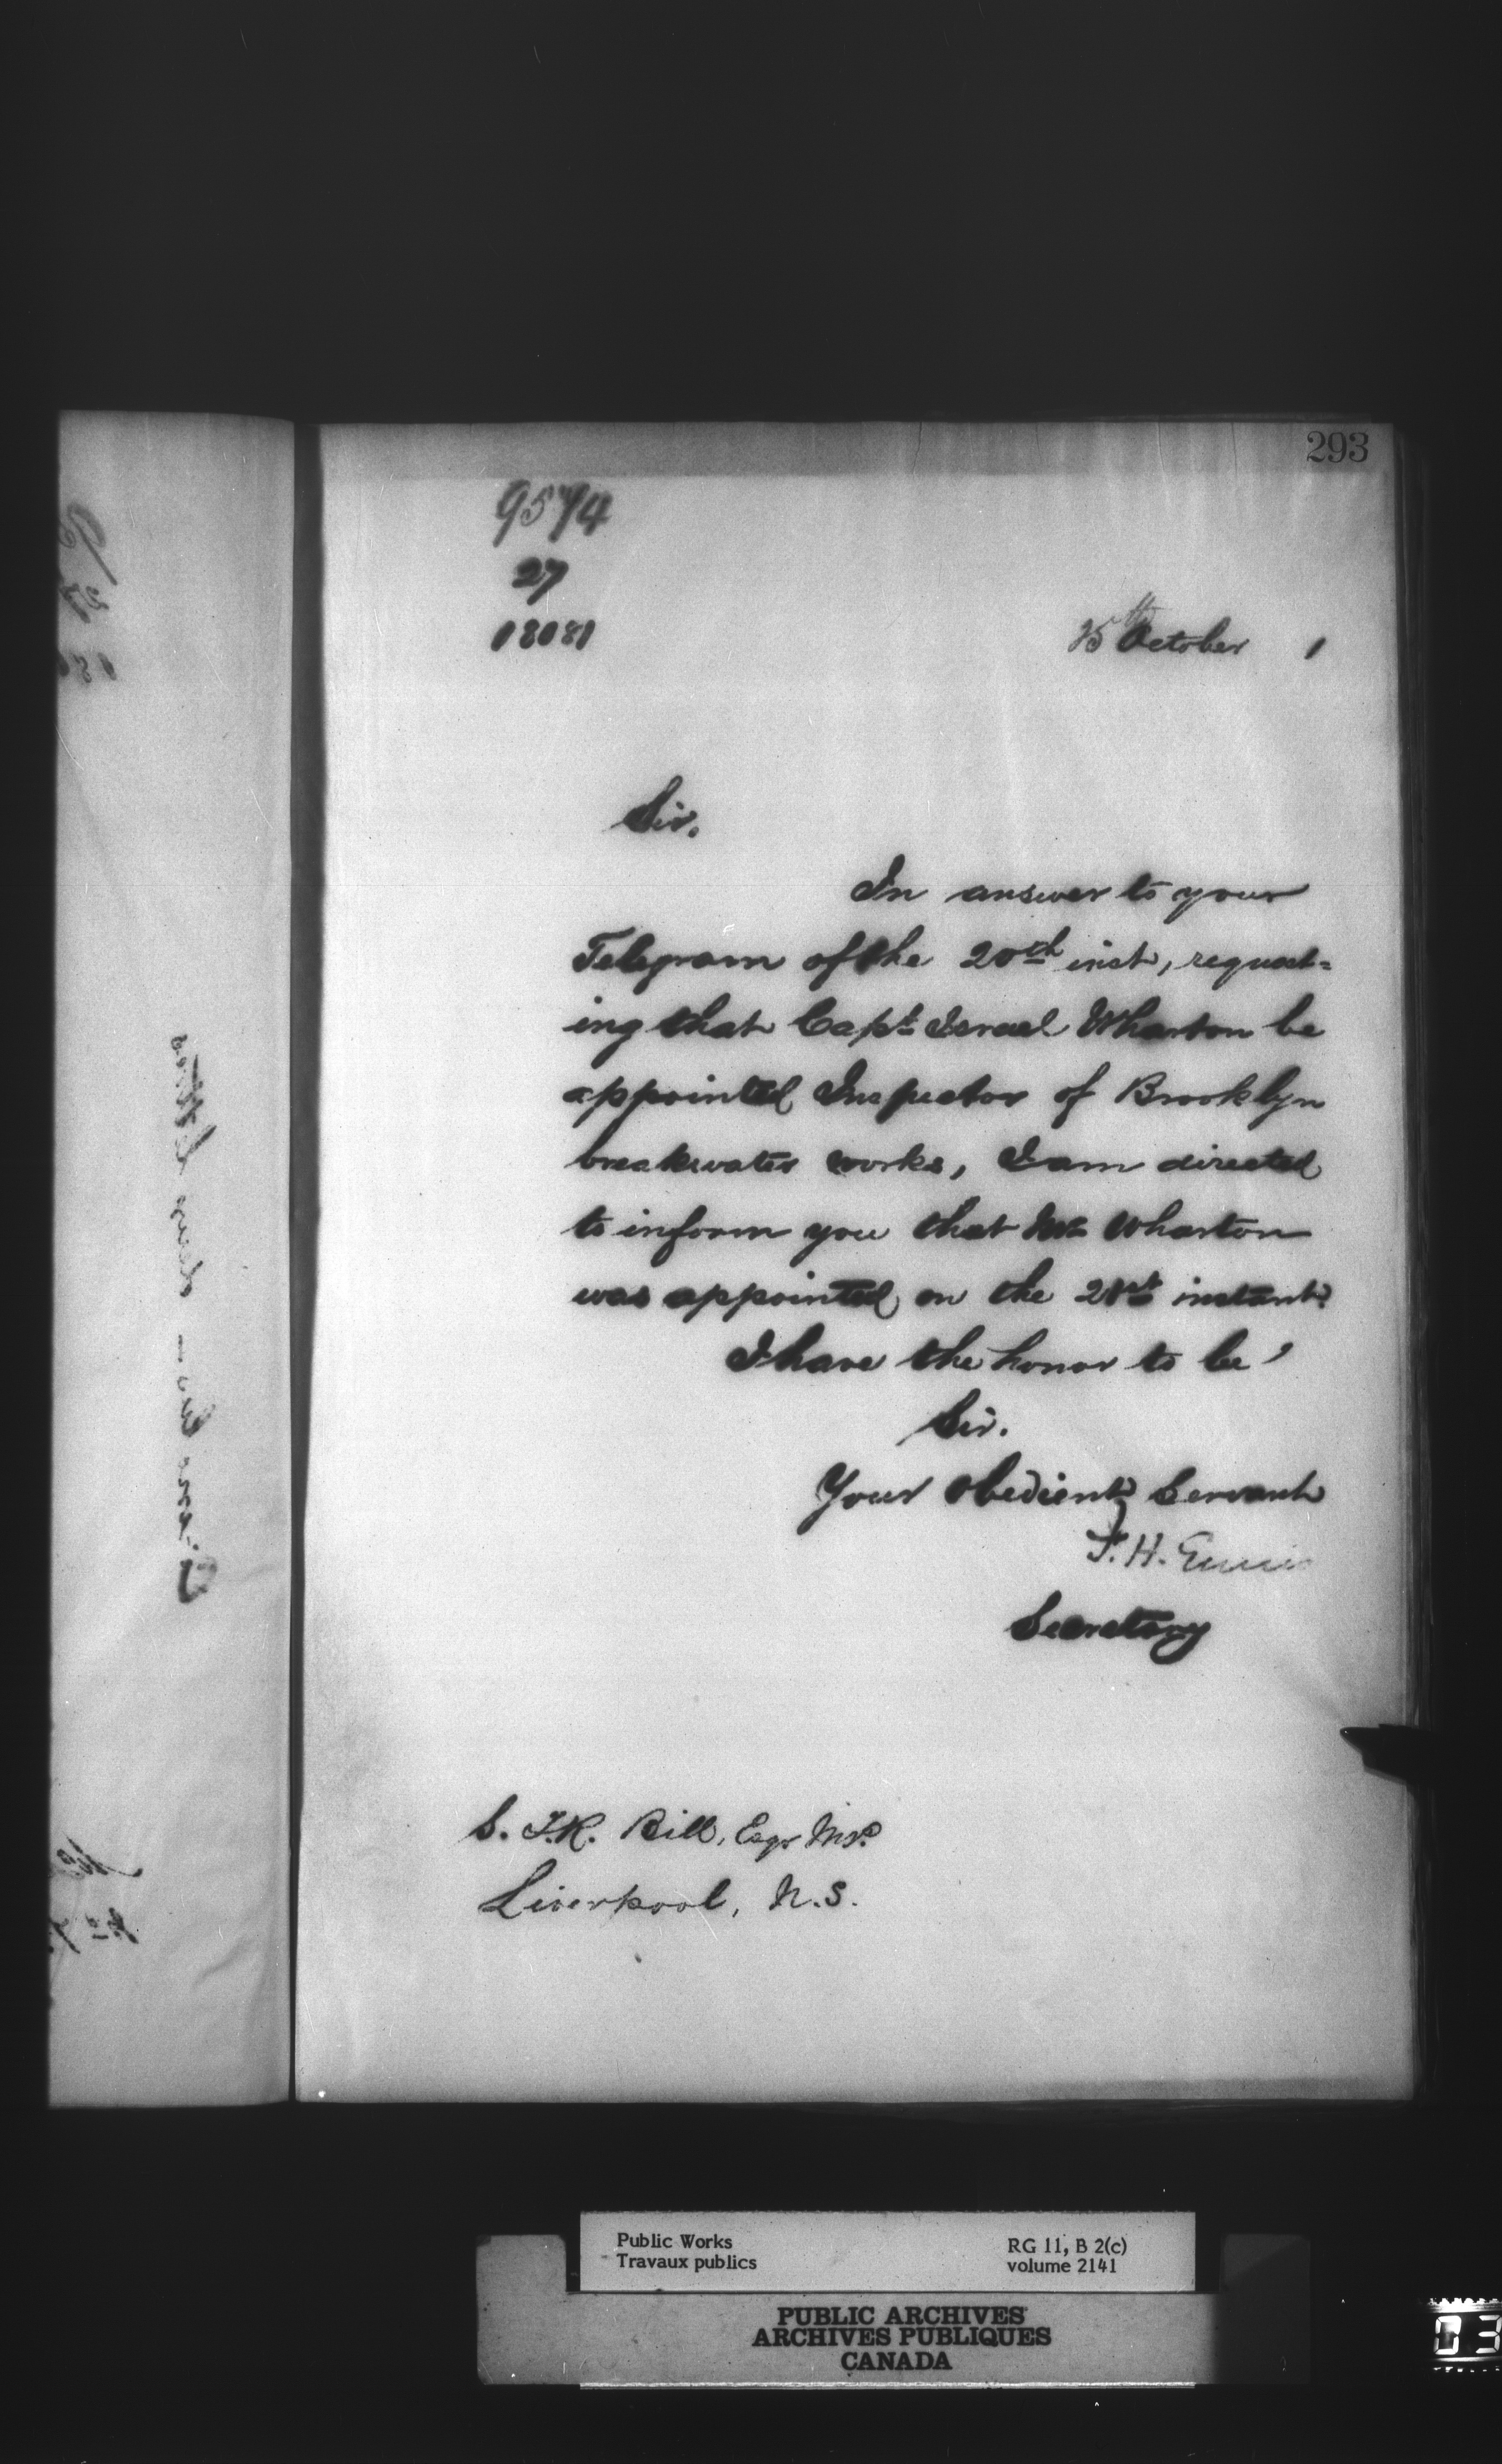 293
9574
27
18081
25th October 1
Sir.
In answer to your
Telegram of the 20th inst, request=
ing that Capt Israel Wharton be
appointed Inspector of Brooklyn
breakwater works, I am directed
to inform you that Mr Wharton
was appointed on the 21st instant.
I have the honor to be,
Sir.
Your obedient Servant
F. H. Ennis
Secretary
S. F.R. Bill, Esqr M.P.
Liverpool, N.S.
Public Works
Travaux publics
RG 11, B 2(c)
volume 2141
PUBLIC ARCHIVES
ARCHIVES PUBLIQUES
CANADA
03